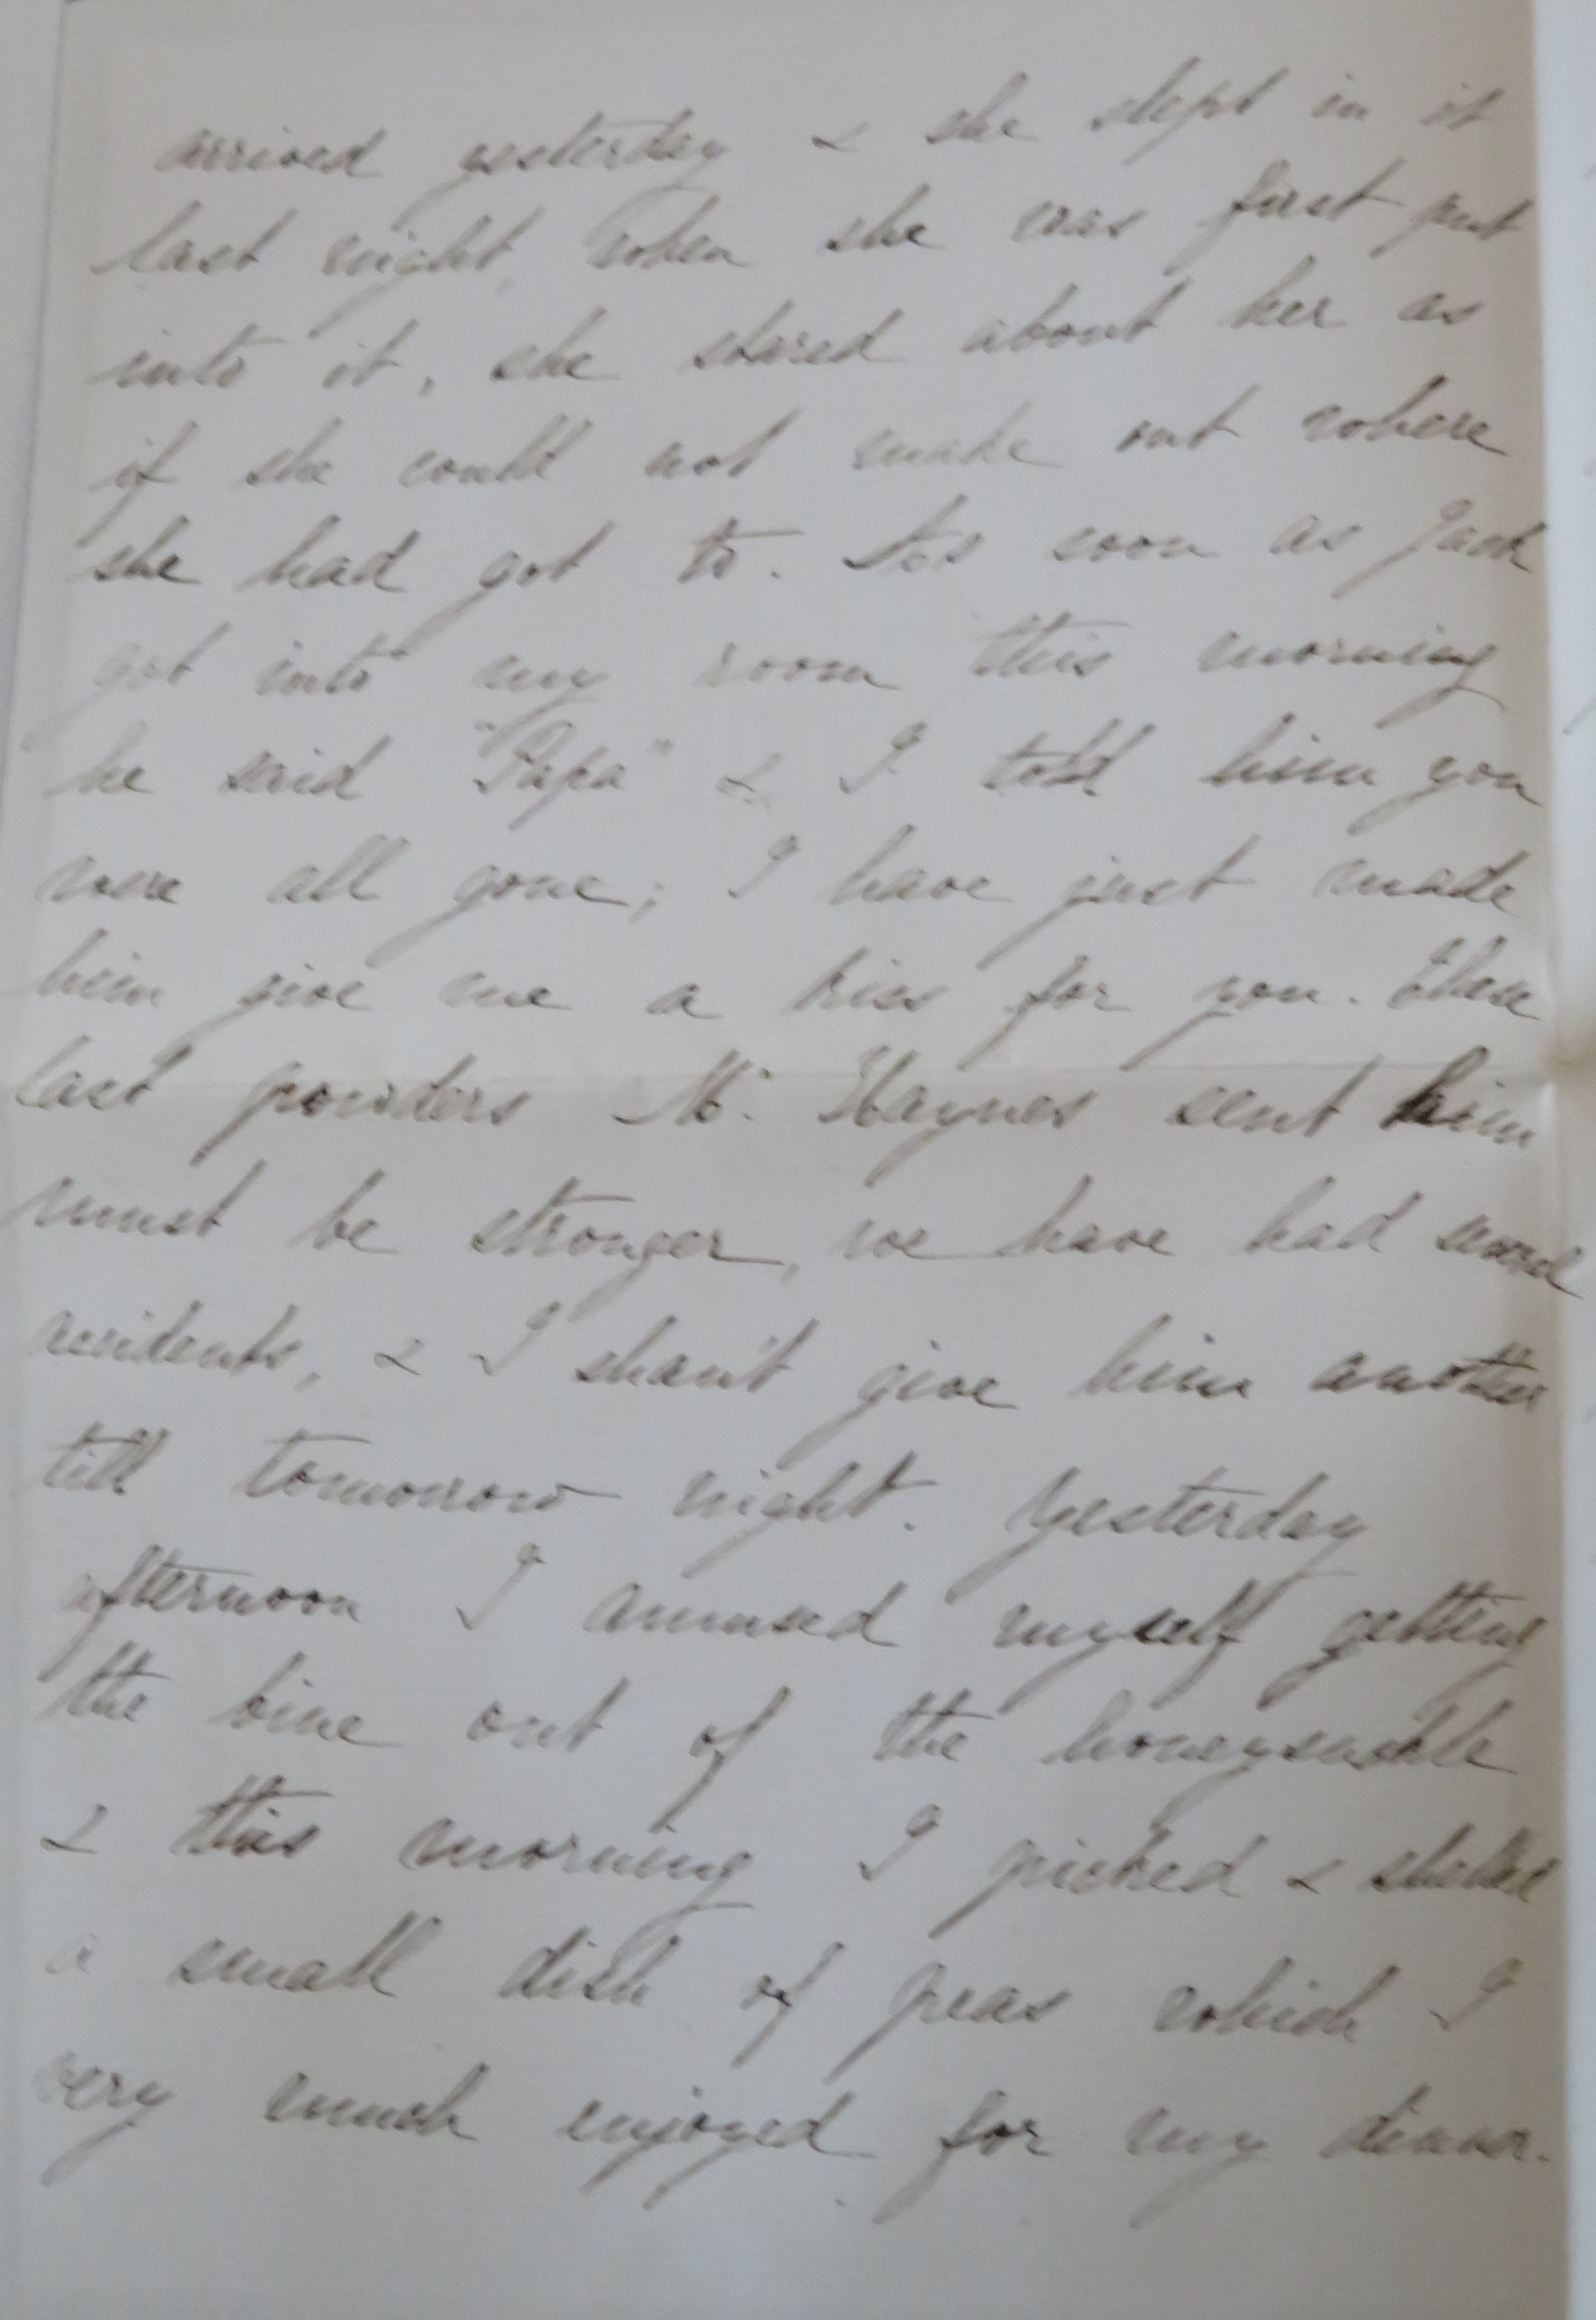 arrived yesterday & she slept in it
last night, when she was first put
into it, she stared about her as
if she could not make out where
she had got to. As soon as Jack
got into my room this morning
he said "Papa" & I told him you
were all gone; I have just made
him give me a kiss for you. These
last powders Mr. Haynes sent him
must be stronger, we have had several
accidents, & I shan't give him another
till tomorrow night. Yesterday
afternoon I amused myself getting
the bine out of the honeysuckle
& this morning I picked & shelled
a small dish of peas which I
very much enjoyed for my dinner.